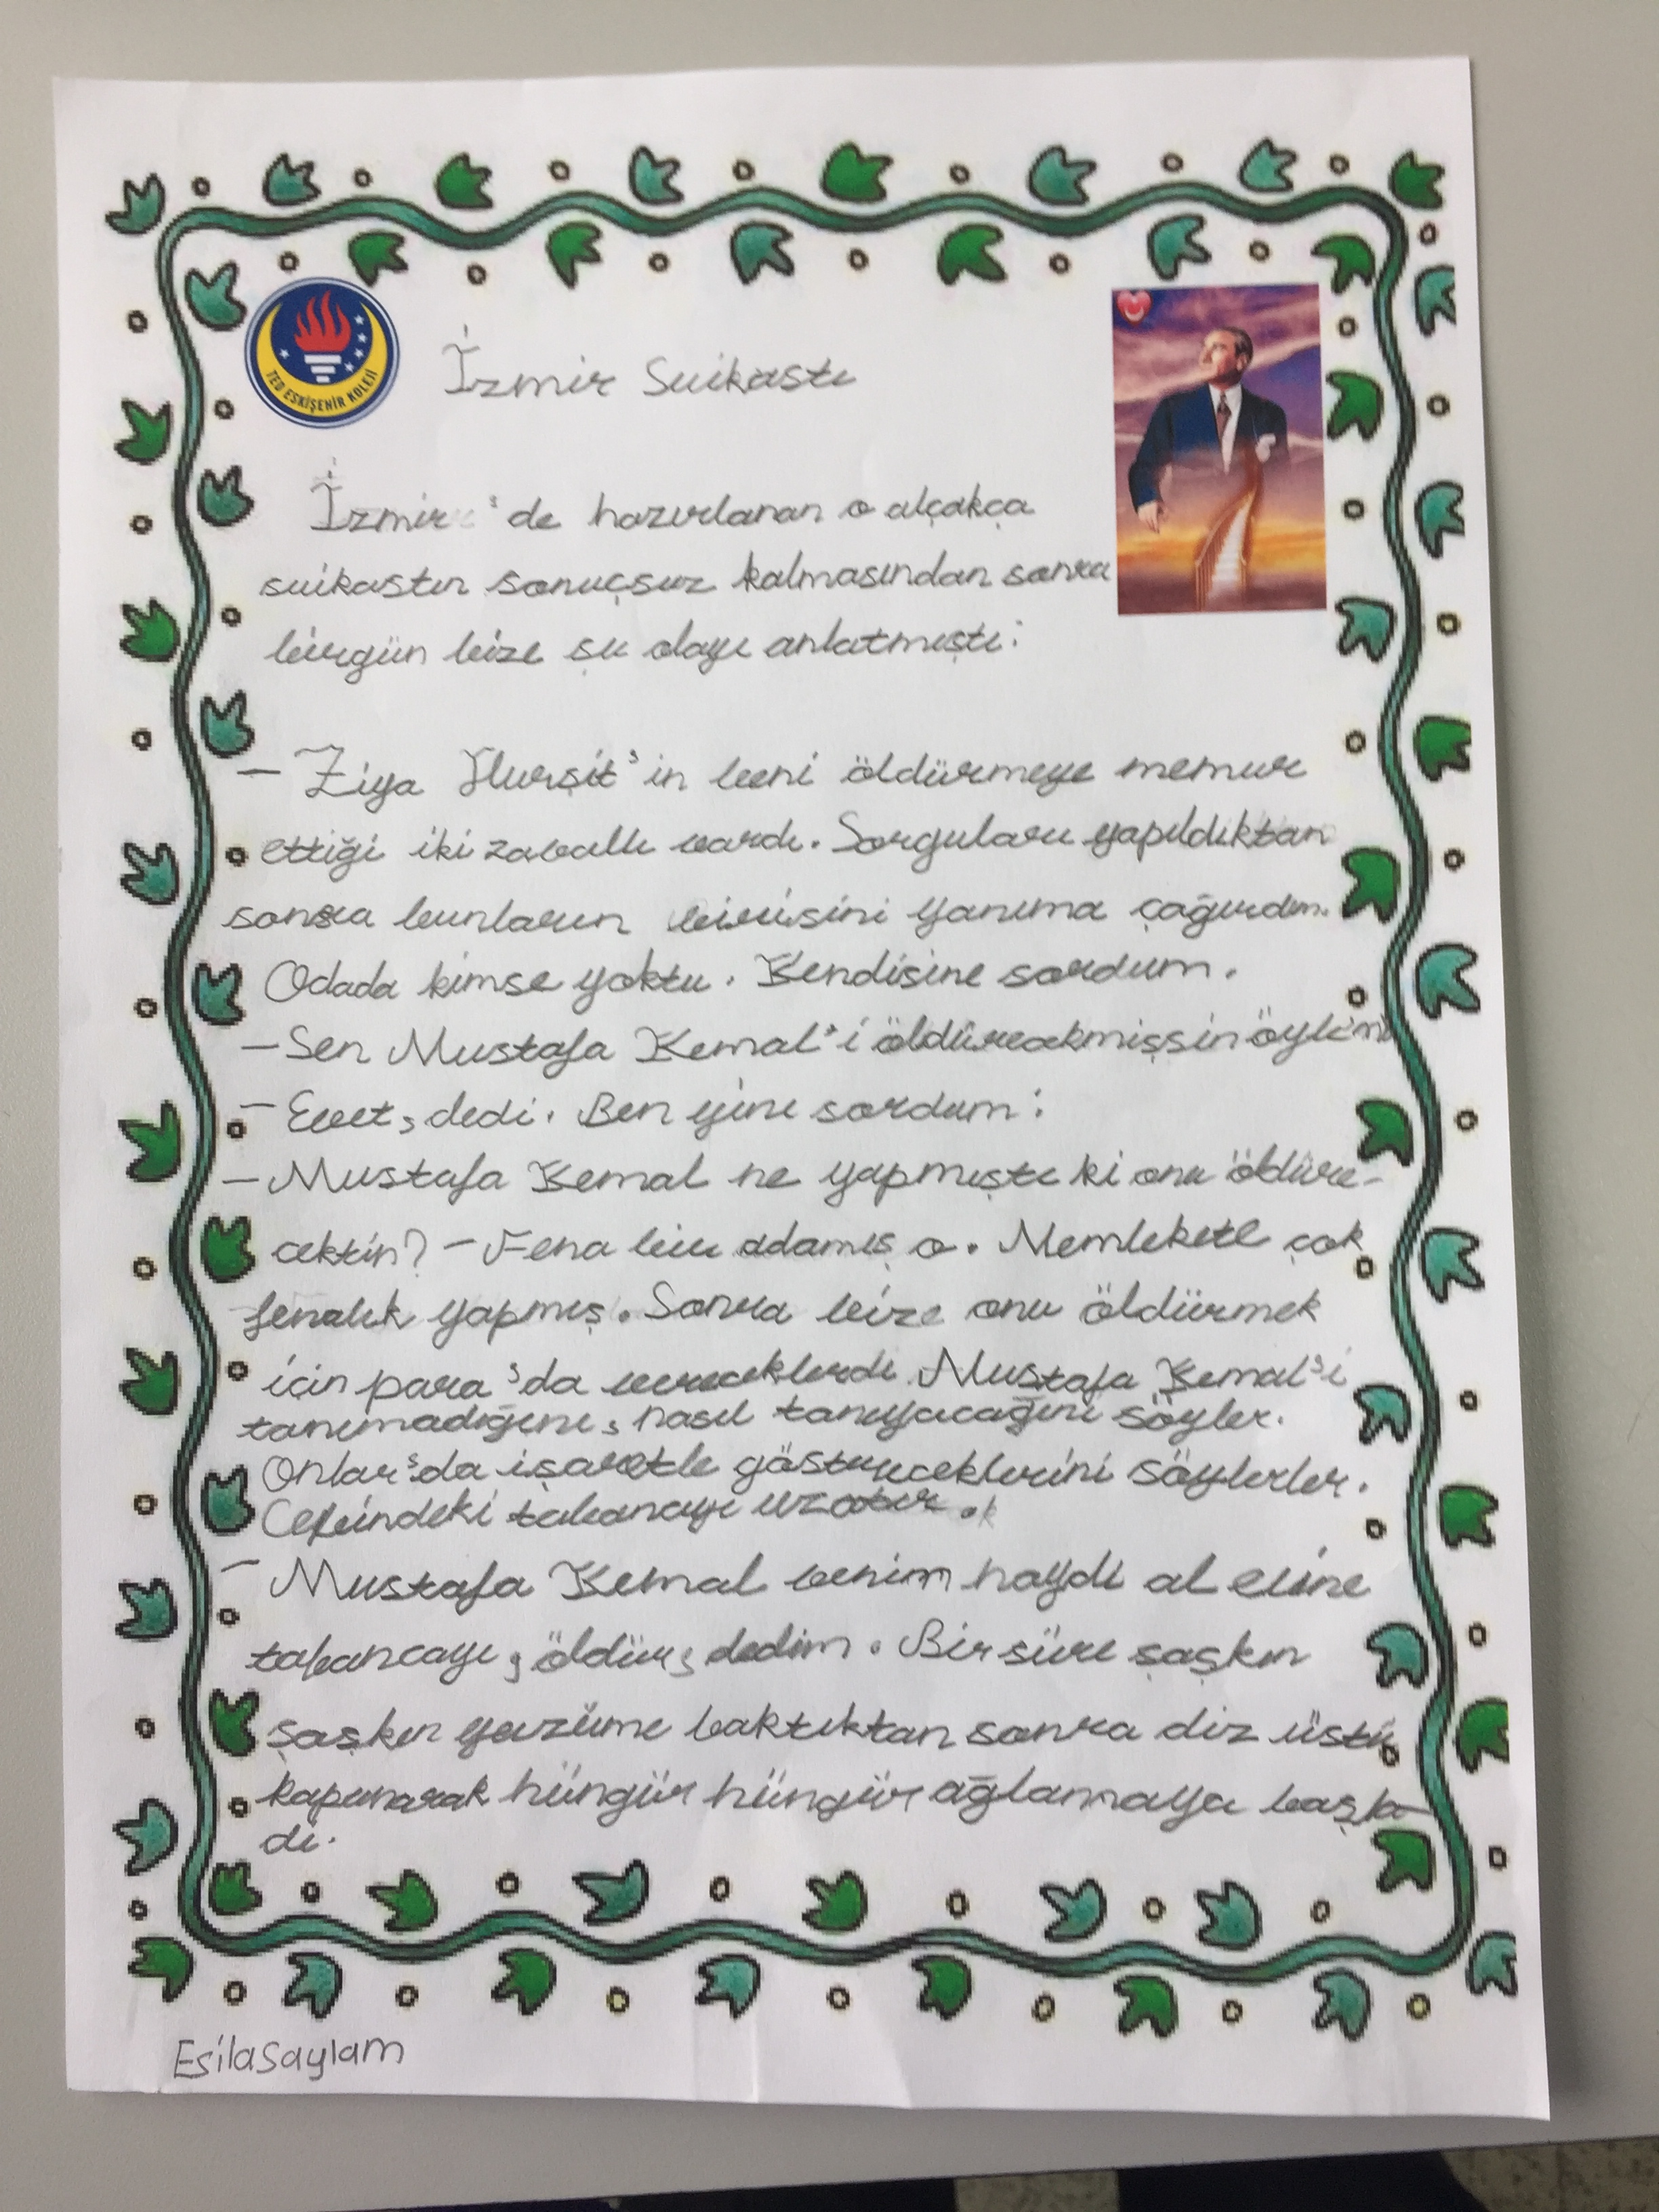 TED ESKİŞEHİR KOLEJİ
İzmir Suikastı
İzmir'de hazırlanan o alçakça
suikastın sonuçsuz kalmasından sonra
birgün bize şu olayı anlatmıştı:
— Ziya Hurşit'in beni öldürmeye memur
ettiği iki zavallı vardı. Sorguları yapıldıktan
sonra bunların birisini yanıma çağırdım.
Odada kimse yoktu. Kendisine sordum.
— Sen Mustafa Kemal'i öldürecekmişsin öyle mi
— Evet, dedi. Ben yine sordum:
— Mustafa Kemal ne yapmıştı ki onu öldüre-
cektin? — Fena bir adamış o. Memlekete çok
fenalık yapmış. Sonra bize onu öldürmek
için para'da vereceklerdi Mustafa Kemal'i
tanımadığını, nasıl tanıyacağını söyler.
Onlar'da işaretle göstereceklerini söylerler.
Cebindeki tabancayı uzatır.
— Mustafa Kemal benim haydi al eline
tabancayı, öldür, dedim. Bir süre şaşkın
şaşkın yüzüme baktıktan sonra diz üstü
kapanarak hüngür hüngür ağlamaya başla-
dı.
Esila Saylam